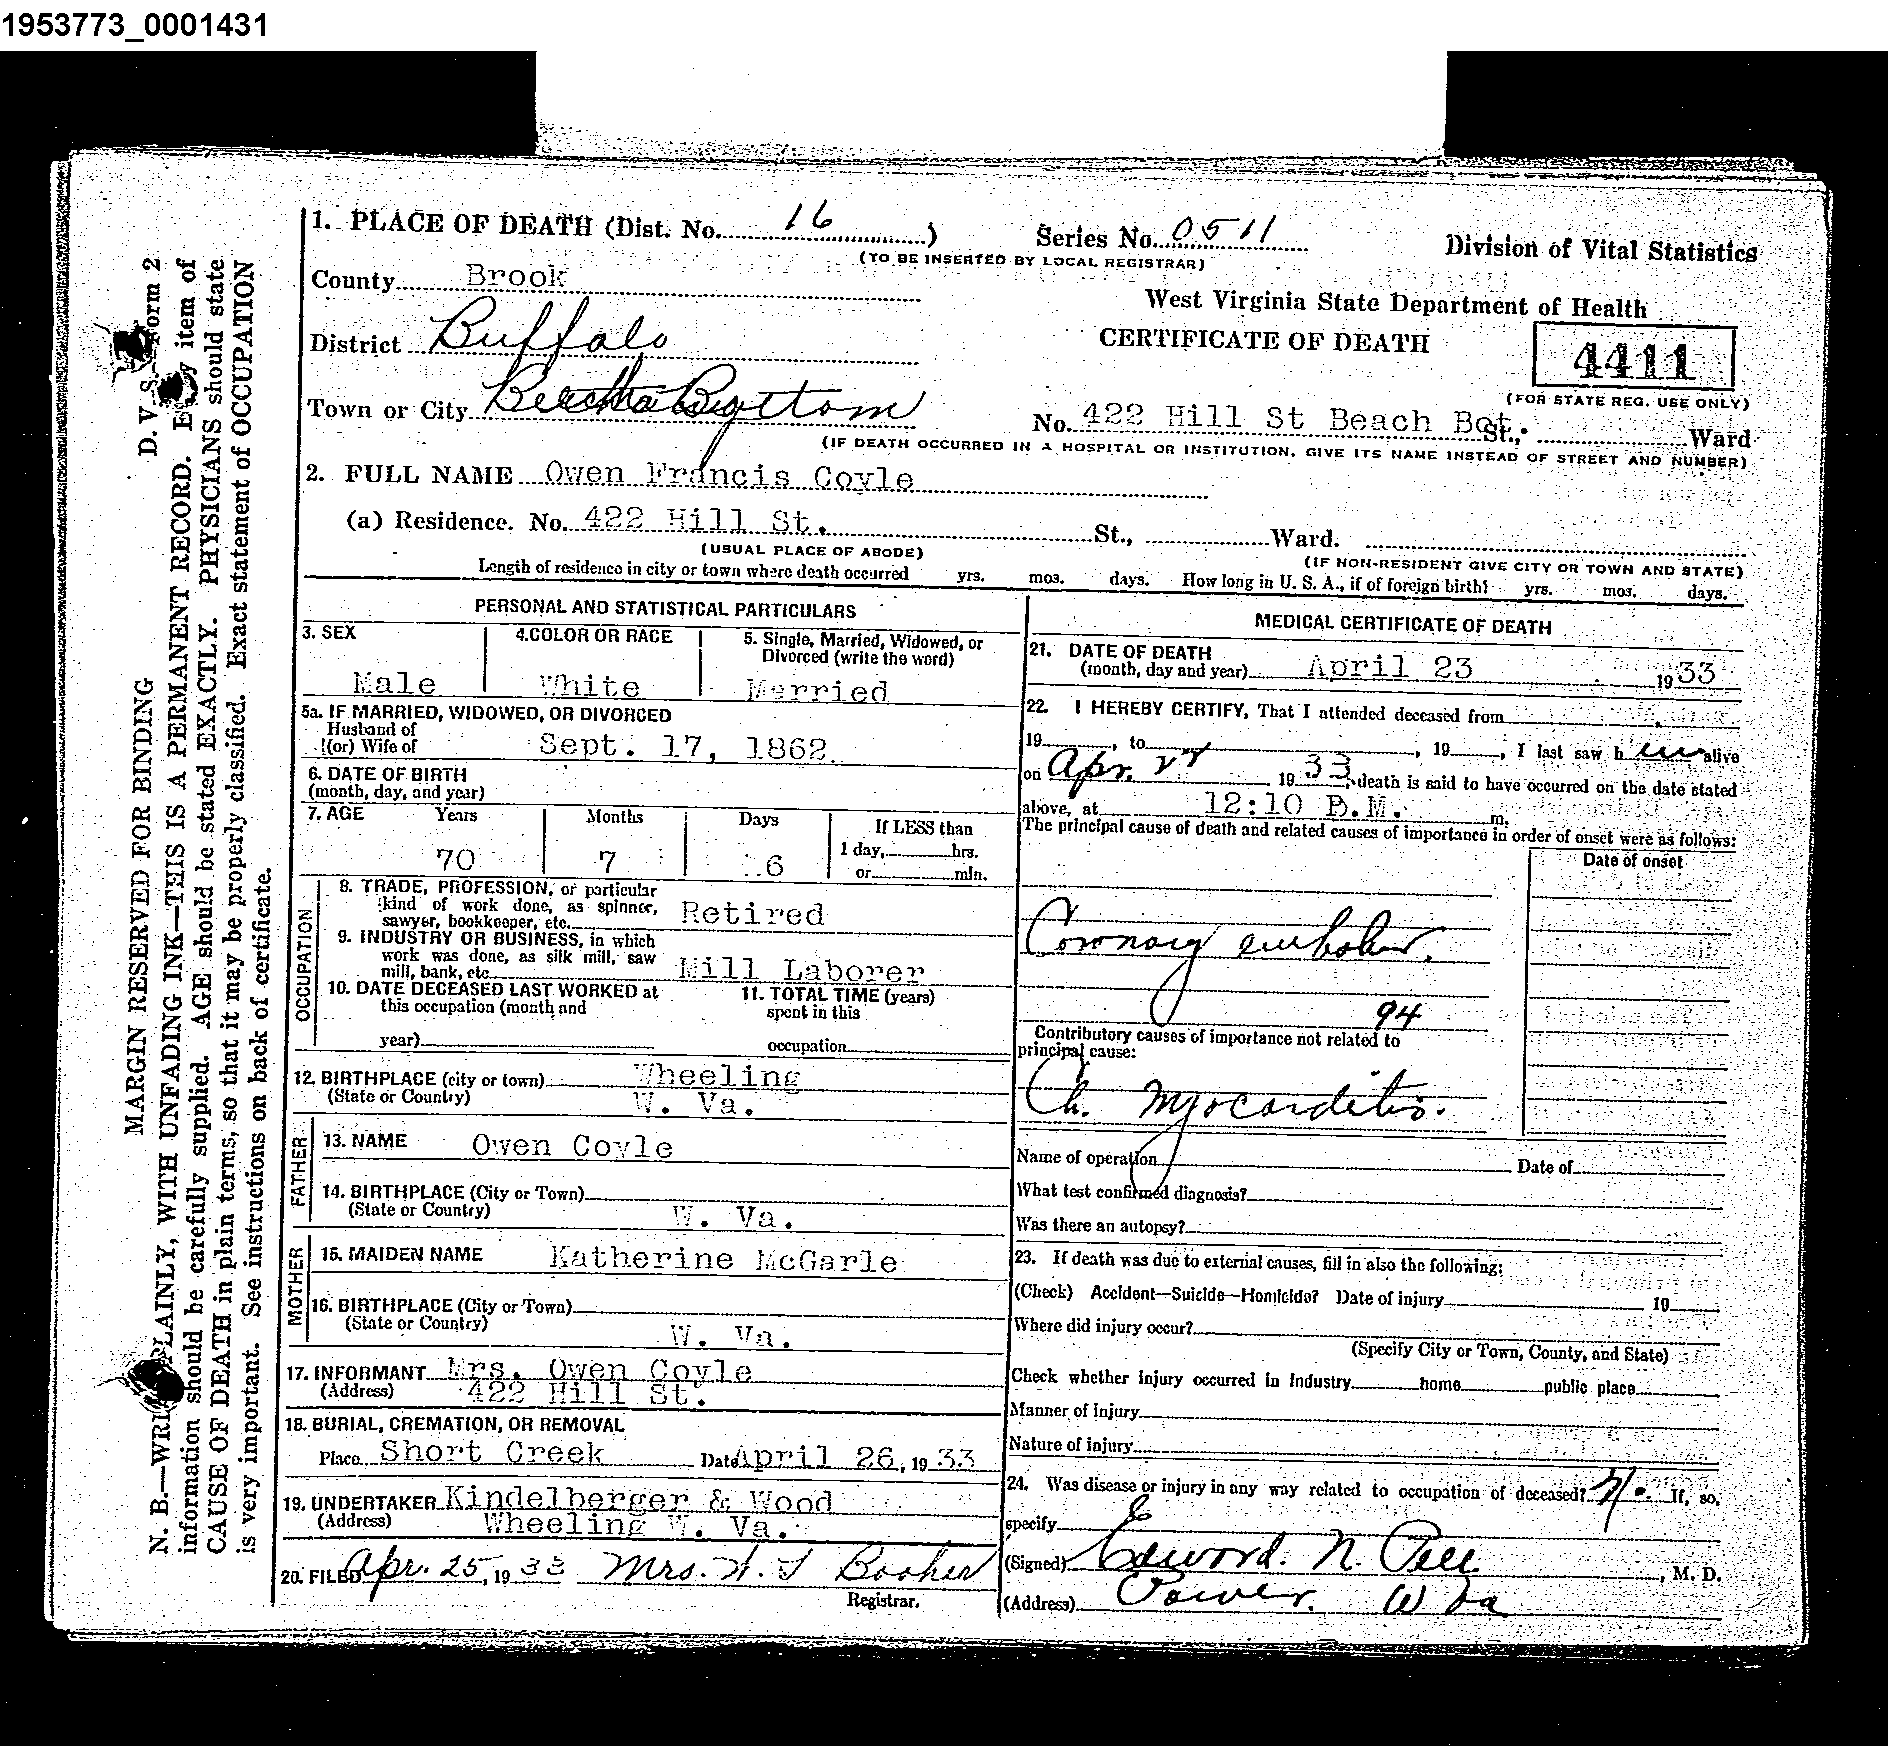 1953773_0001431
1. PLACE OF DEATH (Dist. No. 16 )
Series No. 0511
(TO BE INSERTED BY LOCAL REGISTRAR)
Division of Vital Statistics
County Brook
West Virginia State Department of Health
District Buffalo
CERTIFICATE OF DEATH
4411
(FOR STATE REG. USE ONLY)
Town or City Bottom
No. 422 Hill St Beach Bot. St., Ward
(IF DEATH OCCURRED IN A HOSPITAL OR INSTITUTION, GIVE ITS NAME INSTEAD OF STREET AND NUMBER)
2. FULL NAME Owen Francis Coyle
(a) Residence. No. 422 Hill St. St., Ward.
(USUAL PLACE OF ABODE)
(IF NON-RESIDENT GIVE CITY OR TOWN AND STATE)
Length of residence in city or town where death occurred yrs. mos. days. How long in U. S. A., if of foreign birth? yrs. mos. days.
PERSONAL AND STATISTICAL PARTICULARS
3. SEX
Male
4. COLOR OR RACE
White
5. Single, Married, Widowed, or
Divorced (write the word)
Married
5a. IF MARRIED, WIDOWED, OR DIVORCED
Husband of
(or) Wife of
Sept. 17, 1862
6. DATE OF BIRTH
(month, day, and year)
7. AGE Years Months Days If LESS than
1 day, hrs.
or min.
70 7 6
OCCUPATION
8. TRADE, PROFESSION, or particular
kind of work done, as spinner,
sawyer, bookkeeper, etc. Retired
9. INDUSTRY OR BUSINESS, in which
work was done, as silk mill, saw
mill, bank, etc. Mill Laborer
10. DATE DECEASED LAST WORKED at
this occupation (month and
year)
11. TOTAL TIME (years)
spent in this
occupation
12. BIRTHPLACE (city or town) Wheeling
(State or Country) W. Va.
FATHER
13. NAME Owen Coyle
14. BIRTHPLACE (City or Town)
(State or Country) W. Va.
MOTHER
15. MAIDEN NAME Katherine McGarle
16. BIRTHPLACE (City or Town)
(State or Country) W. Va.
17. INFORMANT Mrs. Owen Coyle
(Address) 422 Hill St.
18. BURIAL, CREMATION, OR REMOVAL
Place Short Creek Date April 26, 1933
19. UNDERTAKER Kindelberger & Wood
(Address) Wheeling W. Va.
20. FILED Apr. 25, 1933 Mrs. Booher
Registrar.
MEDICAL CERTIFICATE OF DEATH
21. DATE OF DEATH
(month, day and year) April 23 1933
22. I HEREBY CERTIFY, That I attended deceased from
19 , to , 19 , I last saw h im alive
on Apr. 1933, death is said to have occurred on the date stated
above, at 12:10 M. m.
The principal cause of death and related causes of importance in order of onset were as follows:
Date of onset
Coronary
94
Contributory causes of importance not related to
principal cause:
Ch. Myocarditis.
Name of operation Date of
What test confirmed diagnosis?
Was there an autopsy?
23. If death was due to external causes, fill in also the following:
(Check) Accident—Suicide—Homicide? Date of injury 19
Where did injury occur?
(Specify City or Town, County, and State)
Check whether injury occurred in Industry home public place
Manner of injury
Nature of injury
24. Was disease or injury in any way related to occupation of deceased? No. If, so,
specify
(Signed) Edward. N. Pell , M. D.
(Address) Power. W Va
MARGIN RESERVED FOR BINDING
D. V S. Form 2
INLY, WITH UNFADING INK—THIS IS A PERMANENT RECORD. item of
information should be carefully supplied. AGE should be stated EXACTLY. PHYSICIANS should state
CAUSE OF DEATH in plain terms, so that it may be properly classified. Exact statement of OCCUPATION
is very important. See instructions on back of certificate.